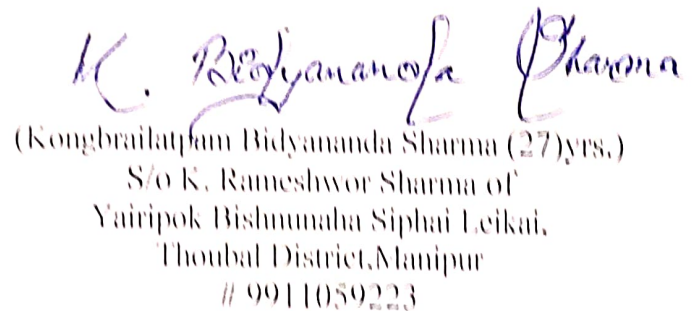 K. Bidyananda Sharma
(Kongbrailatpam Bidyananda Sharma (27)yrs.)
S/o K. Rameshwor Sharma of
Yairipok Bishnunaha Siphai Leikai,
Thoubal District,Manipur
# 9911059223